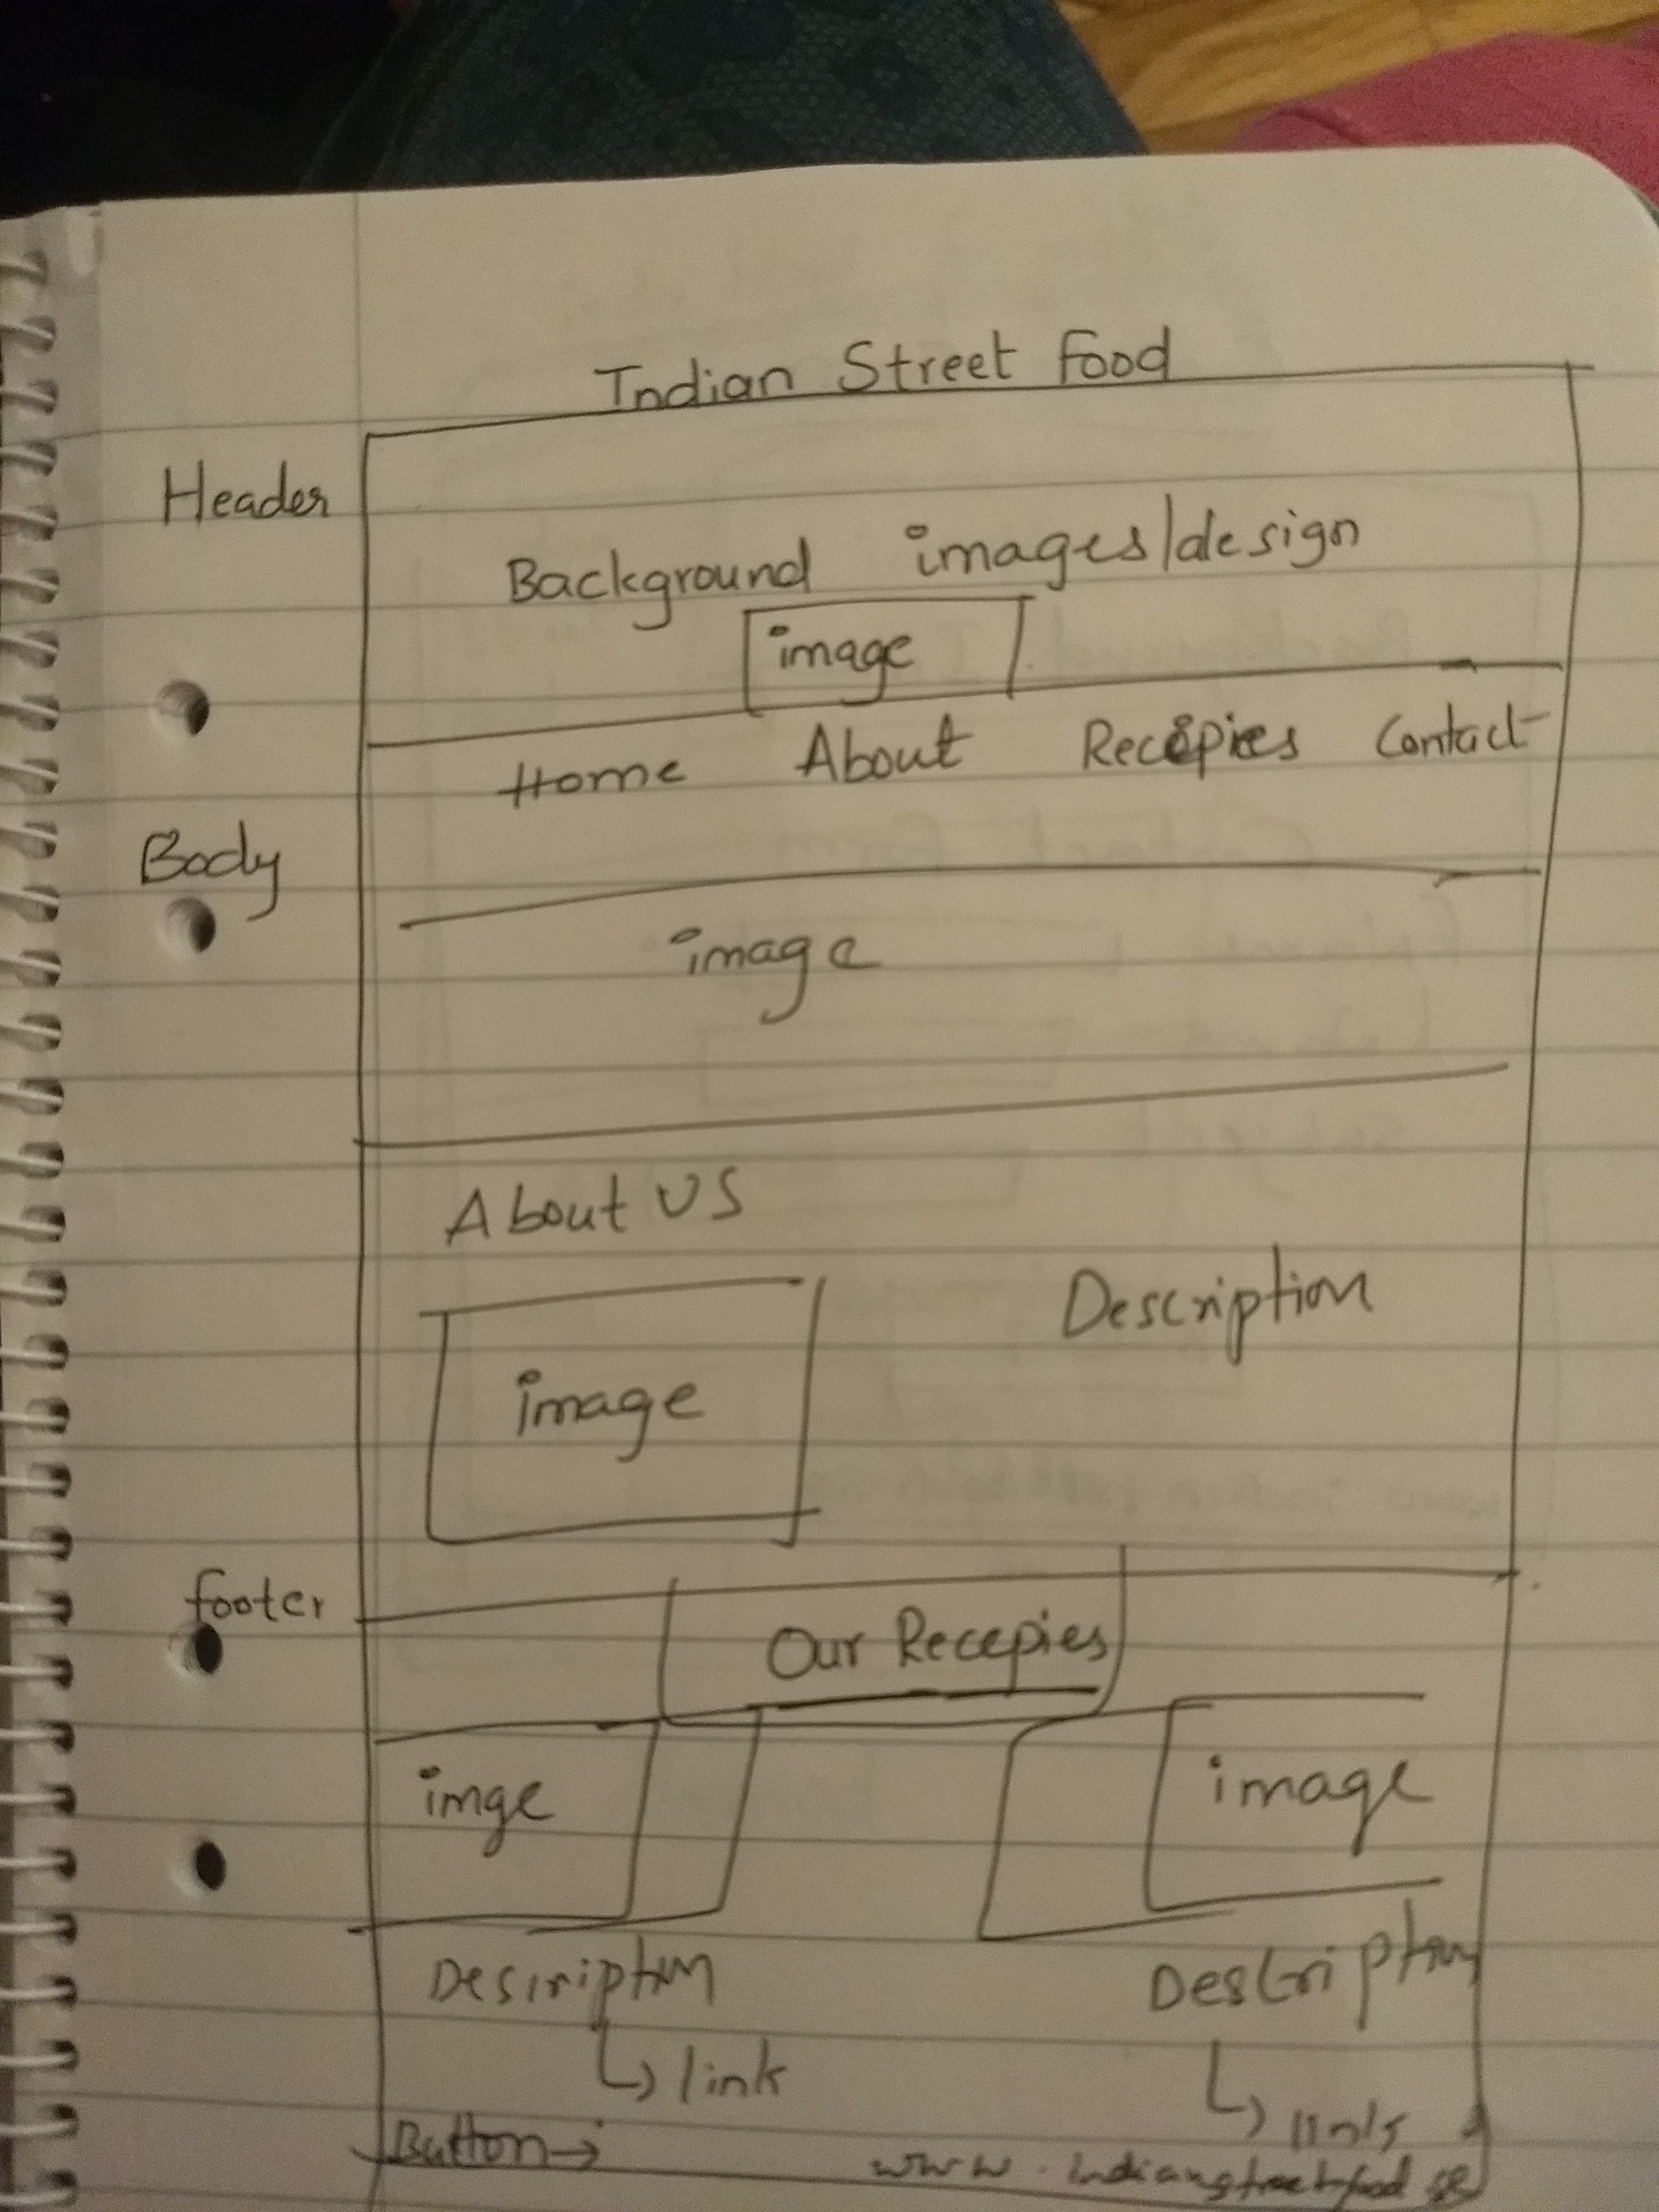 Indian Street Food
Header
Background images/design
image
Home About Recipies Contact
Body
image
About US
Description
image
footer
Our Recepies
imge image
Description Description
link links
Button→ www.indianstreetfood.se